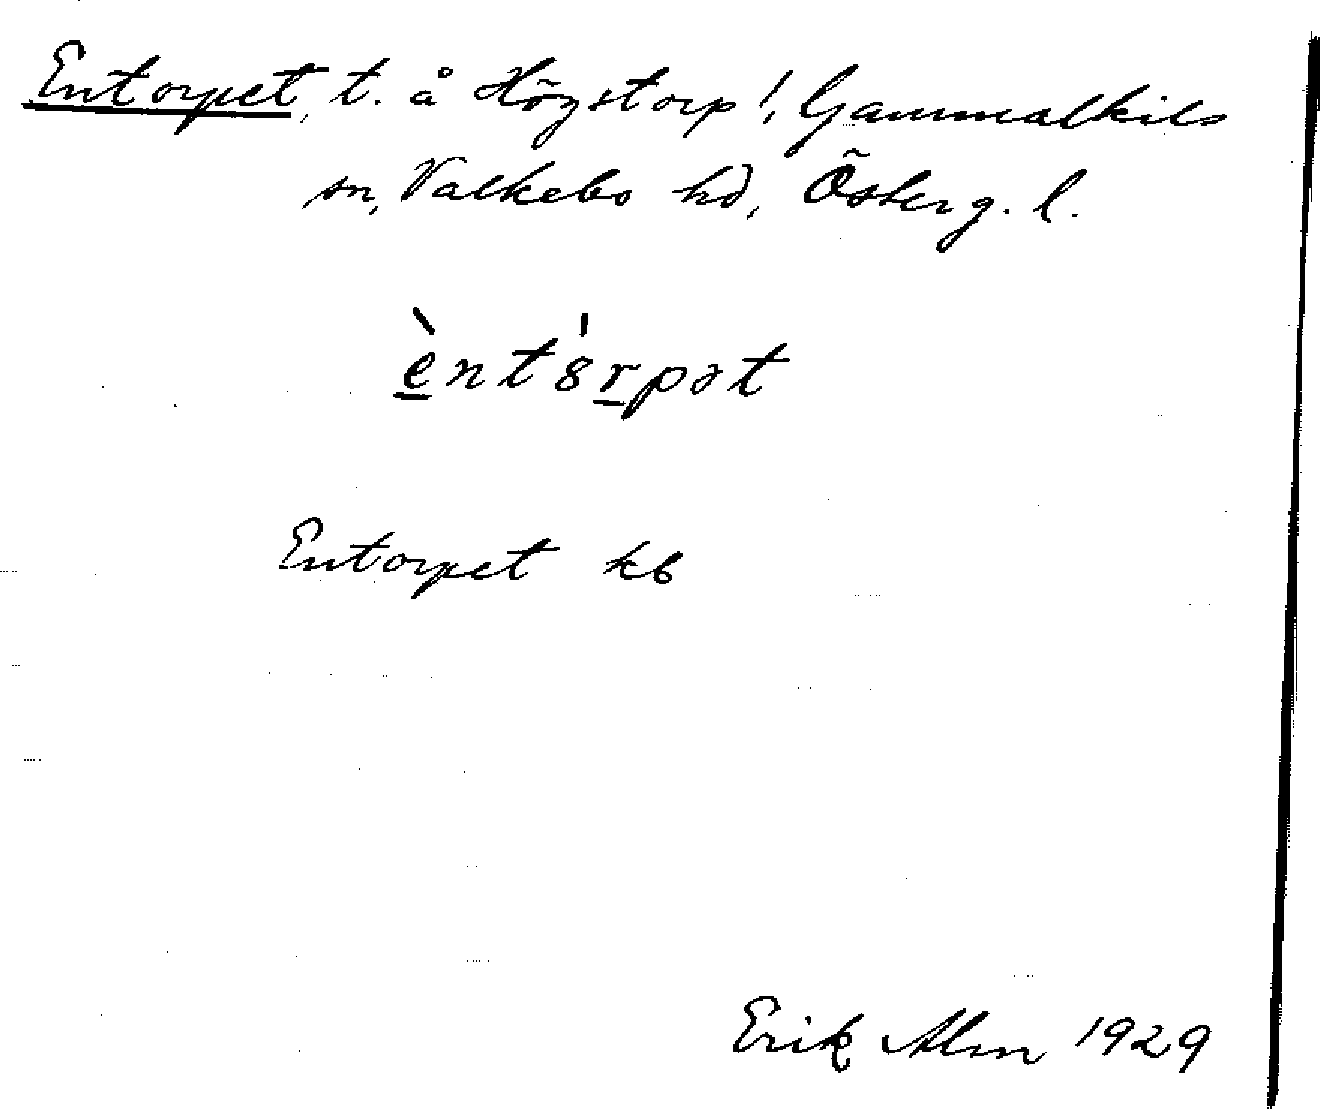 Entorpet, t. å Högstorp!, Gammalkils
sn, Valkebo hd, Österg. l.
èntʹ8rpət
Entorpet kb
Erik Alm 1929